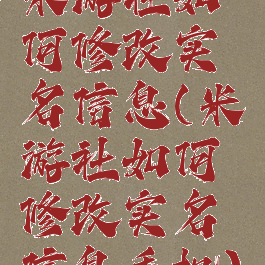 米游社如
何修改实
名信息(米
游社如何
修改实名
信息手机)